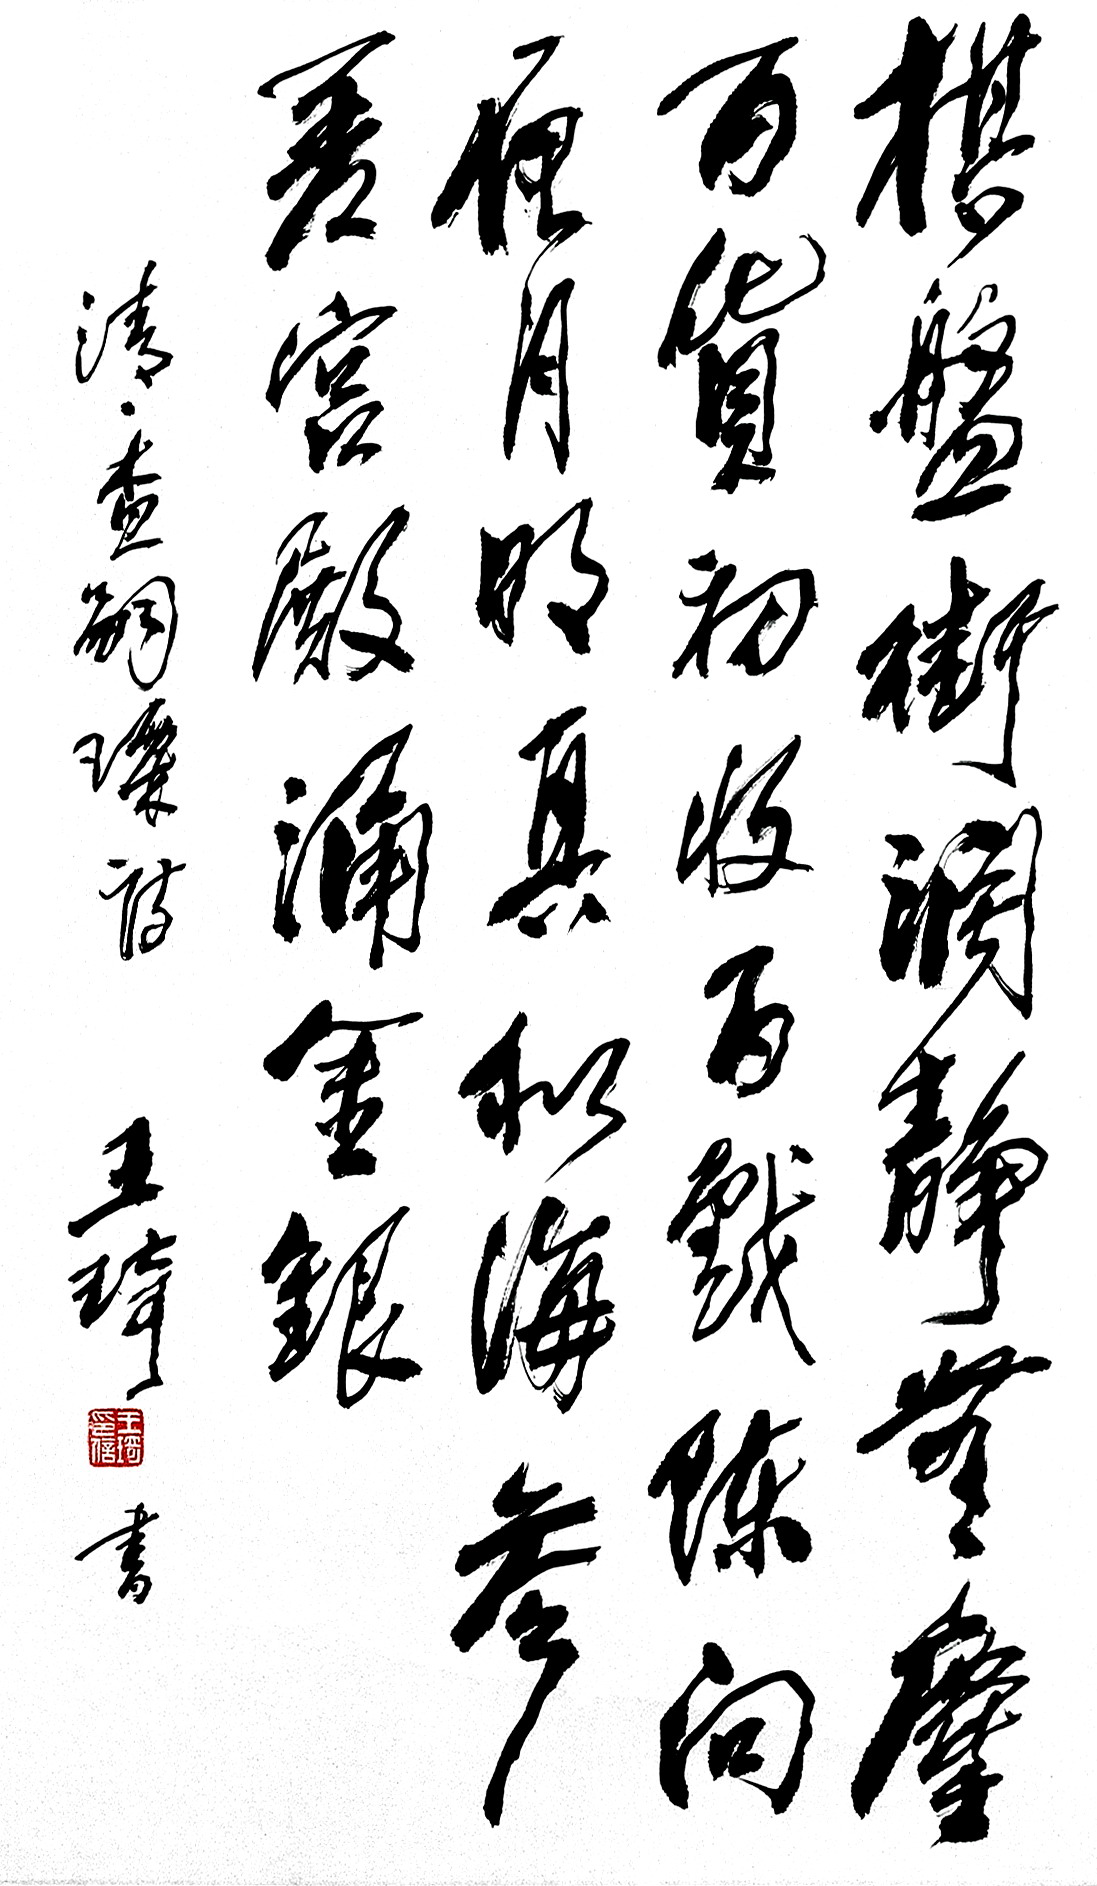 棋盤街濶靜無塵
百貨初收百戲陳向
夜月明真似海參
差宮殿涌金銀
清·查嗣瑮詩 王琦書
王琦印信